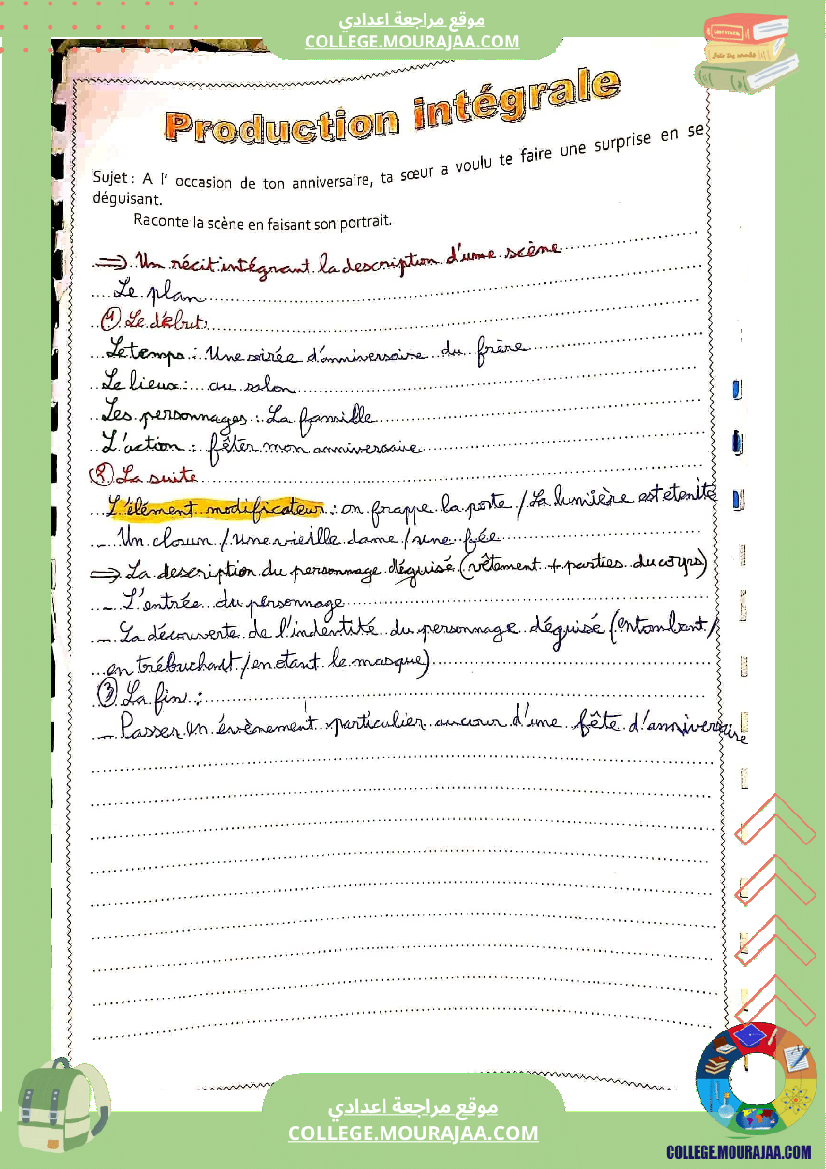 موقع مراجعة اعدادي
COLLEGE.MOURAJAA.COM
Production intégrale
Sujet : A l' occasion de ton anniversaire, ta sœur a voulu te faire une surprise en se
déguisant.
Raconte la scène en faisant son portrait.
=> Un récit intégrant la description d'une scène
Le plan
1 Le début:
Le temps : Une soirée d'anniversaire du frère
Le lieux : au salon
Les personnages : La famille
L'action : fêter mon anniversaire
2 La suite
L'élément modificateur : on frappe la porte / La lumière est etenité
- Un clown / une vieille dame / une fée
=> La description du personnage déguisé (vêtement + parties du corps)
- L'entrée du personnage
- La découverte de l'indentité du personnage déguisé (entombant /
en trébuchant / en ôtant le masque)
3 La fin :
- Passer un évènement particulier aucour d'une fête d'anniversaire
موقع مراجعة اعدادي
COLLEGE.MOURAJAA.COM
COLLEGE.MOURAJAA.COM